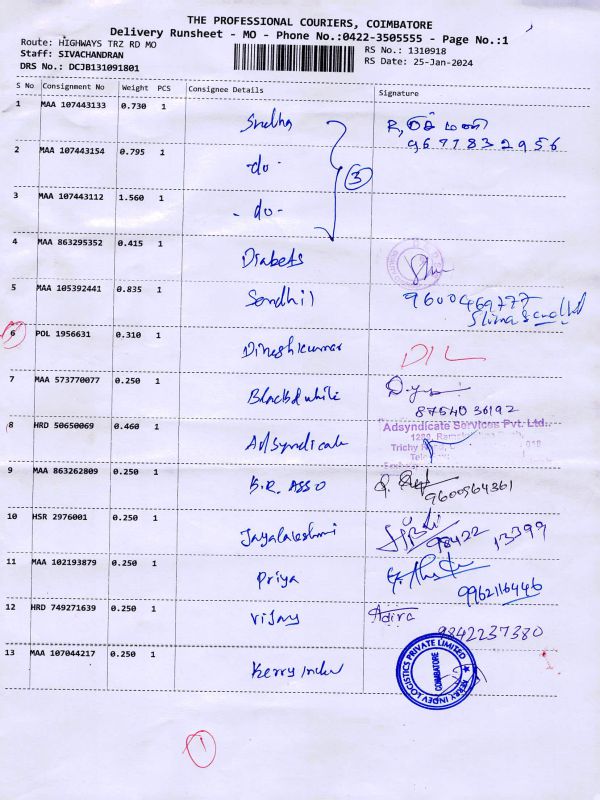 THE PROFESSIONAL COURIERS, COIMBATORE
Delivery Runsheet - MO - Phone No.:0422-3505555 - Page No.:1
Route: HIGHWAYS TRZ RD MO
RS No.: 1310918
Staff: SIVACHANDRAN
RS Date: 25-Jan-2024
DRS No.: DCJB131091801
S No Consignment No Weight PCS Consignee Details Signature
1 MAA 107443133 0.730 1 Sndha
9677832956
2 MAA 107443154 0.795 1 -do-
3
3 MAA 107443112 1.560 1 -do-
4 MAA 863295352 0.415 1 Diabets
5 MAA 105392441 0.835 1 Sendhil 9600469777
6 POL 1956631 0.310 1 Dineshkumar DIL
7 MAA 573770077 0.250 1 Black&white
8754036192
8 HRD 50650069 0.460 1 Adsyndicate Adsyndicate Services Pvt. Ltd.
Trichy
9 MAA 863262809 0.250 1 B.R. ASSO 9600964361
10 HSR 2976001 0.250 1 Jayalakshmi 98422 13399
11 MAA 102193879 0.250 1 Priya
9962116446
12 HRD 749271639 0.250 1 Vijay Adira
9842237380
13 MAA 107044217 0.250 1 Kerry Indev KERRY INDEV LOGISTICS PRIVATE LIMITED
COIMBATORE
1